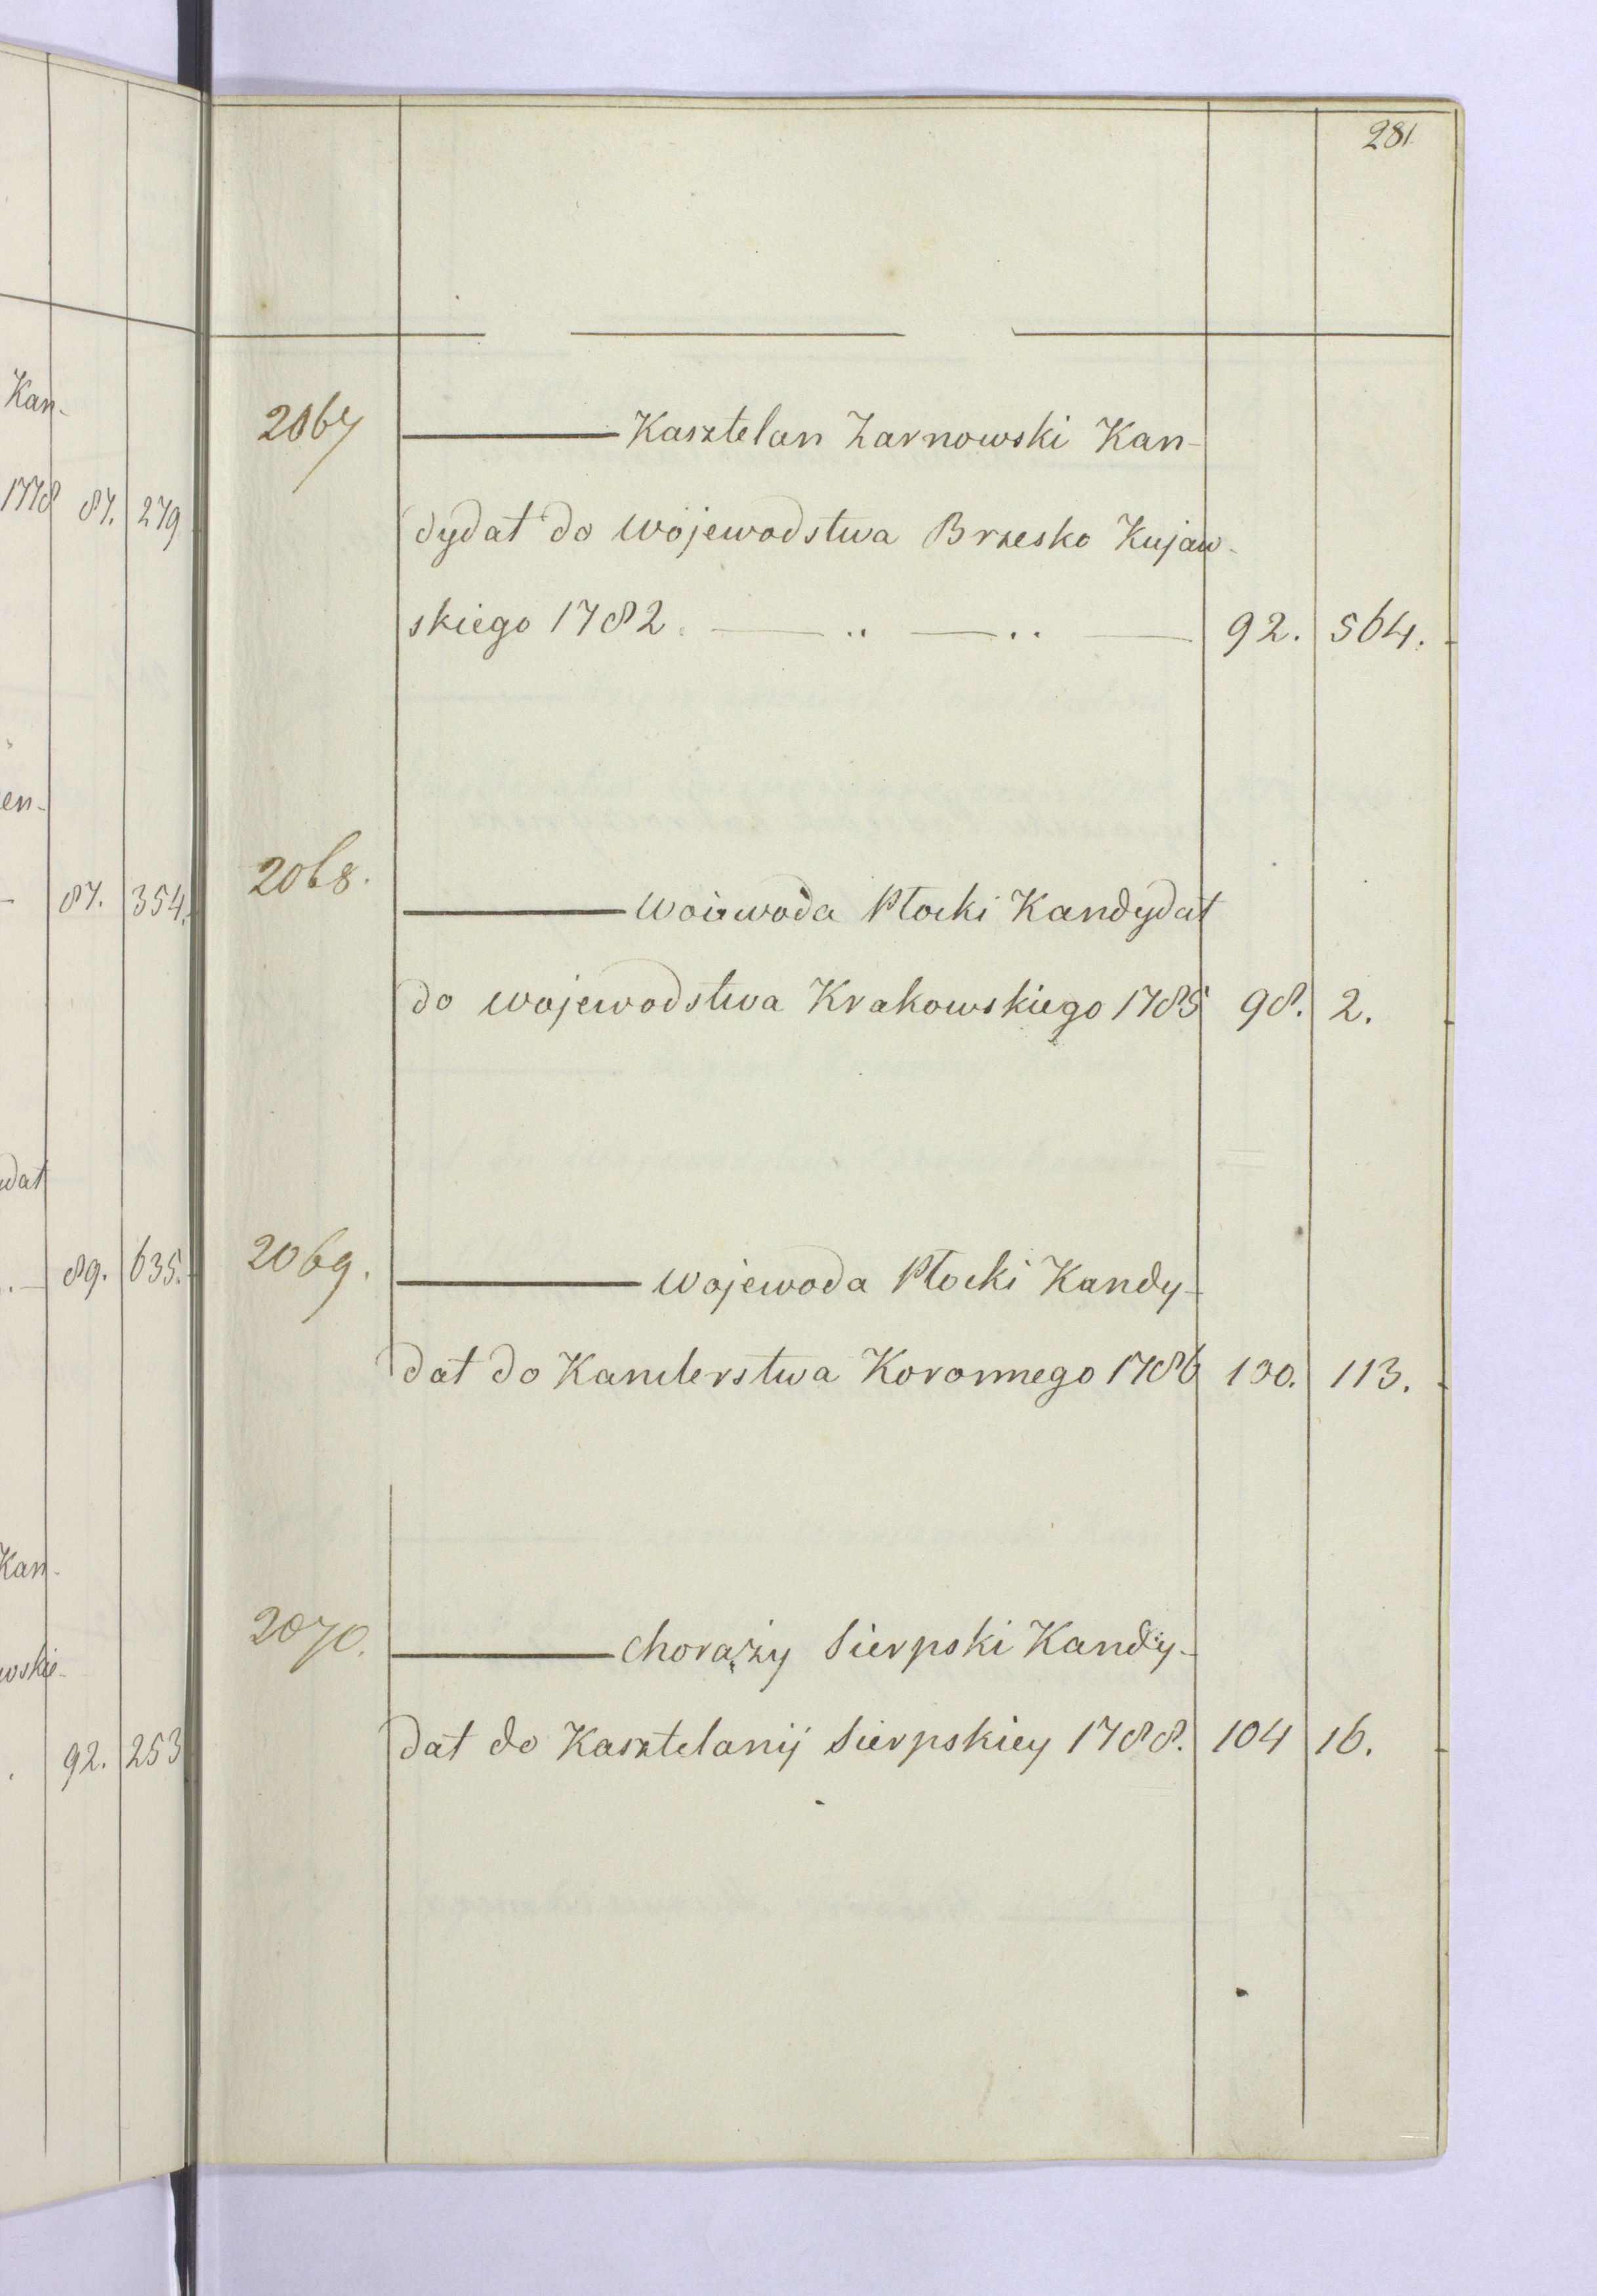 281
Kan-
1778 87. 279
en-
87. 354.
dat
89. 635.
Kan-
wskie-
92. 253
2067 ——— Kasztelan Zarnowski Kan-
dydat do Wojewodstwa Brzesko Kujaw-
skiego 1782. — .. — .. — 92. 564.
2068. ——— Woiewoda Płocki Kandydat
do Wojewodstwa Krakowskiego 1785 98. 2.
2069. ——— Wojewoda Płocki Kandy-
dat do Kanclerstwa Koronnego 1786 100. 113.
2070. ——— Chorąży Sierpski Kandy-
dat do Kasztelanij Sierpskiey 1788. 104 16.